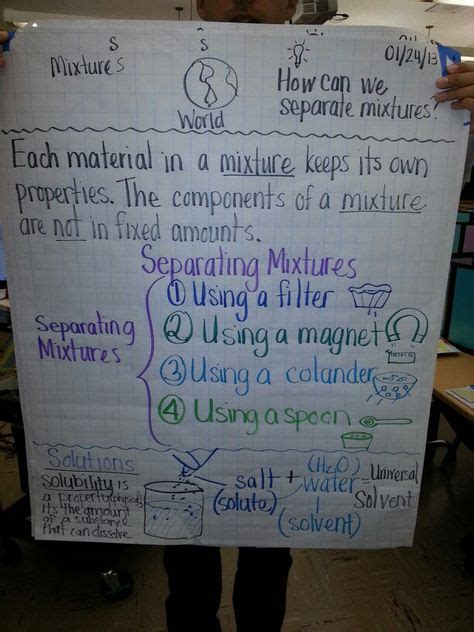 S
S
01/24/13
Mixtures
World
How can we
separate mixtures?
Each material in a mixture keeps its own
properties. The components of a mixture
are not in fixed amounts.
Separating Mixtures
Separating
Mixtures
① Using a filter
② Using a magnet
③ Using a colander
④ Using a spoon
Solutions
Solubility is
a property (physical)
It's the amount
of a substance
that can dissolve
salt +
(soluto)
(H2O)
water
(solvent)
= Universal
Solvent